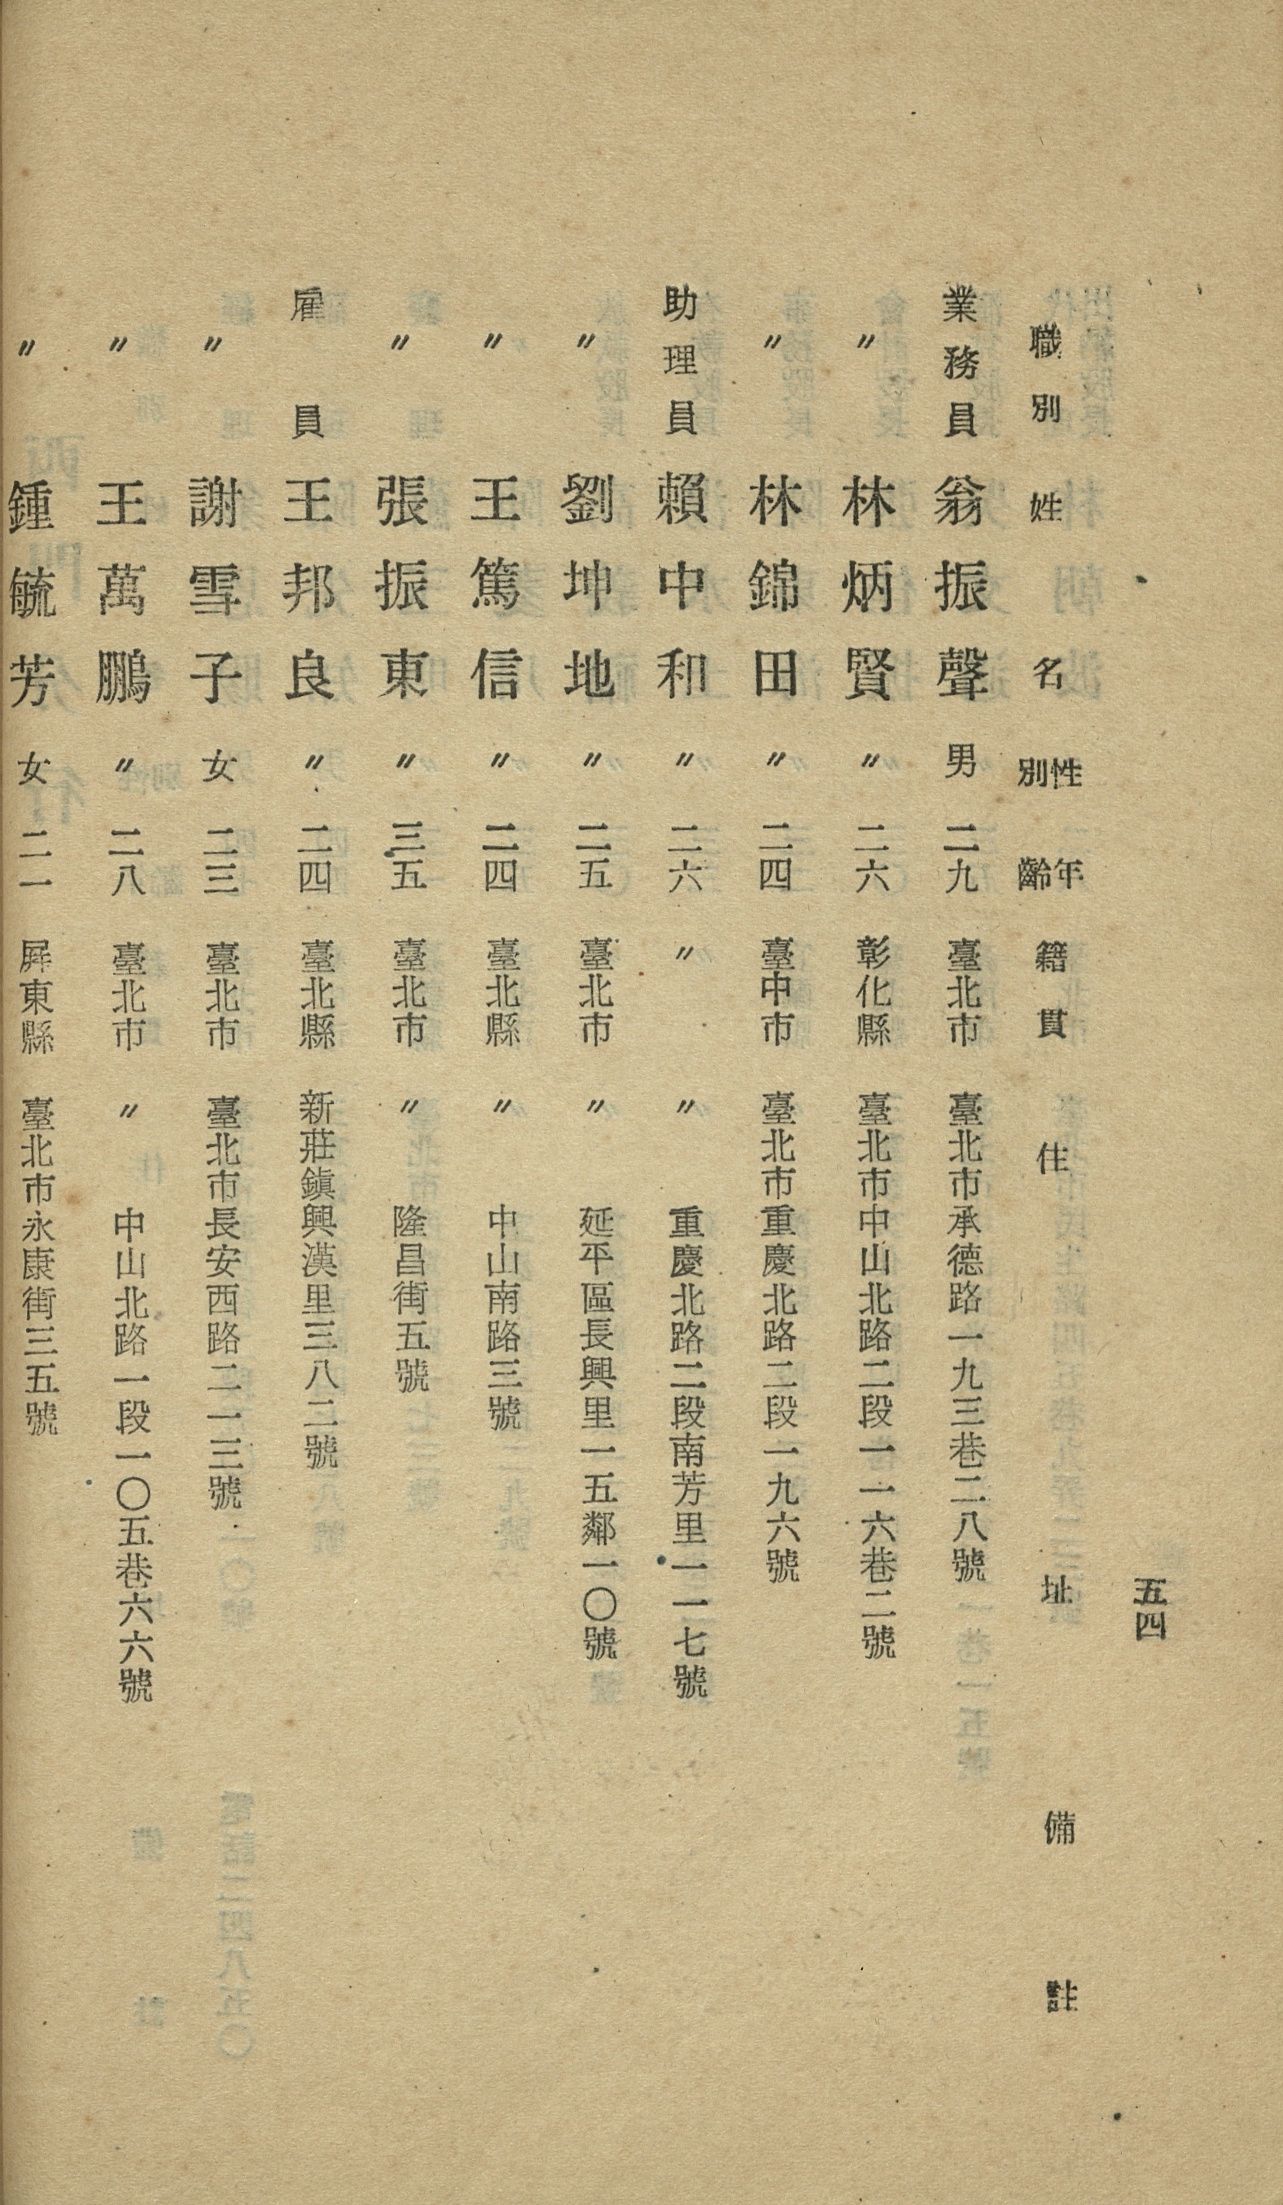 五四
職別 姓名 性別 年齡 籍貫 住址 備註
業務員 翁振聲 男 二九 臺北市 臺北市承德路一九三巷二八號
〃 林炳賢 〃 二六 彰化縣 臺北市中山北路二段一一六巷二號
〃 林錦田 〃 二四 臺中市 臺北市重慶北路二段一九六號
助理員 賴中和 〃 二六 〃 〃 重慶北路二段南芳里一一七號
〃 劉坤地 〃 二五 臺北市 〃 延平區長興里一五鄰一〇號
〃 王篤信 〃 二四 臺北縣 〃 中山南路三號
〃 張振東 〃 三五 臺北市 〃 隆昌街五號
雇員 王邦良 〃 二四 臺北縣 新莊鎮興漢里三八二號
〃 謝雪子 女 二三 臺北市 臺北市長安西路二一三號
〃 王萬鵬 〃 二八 臺北市 〃 中山北路一段一〇五巷六六號
〃 鍾毓芳 女 二一 屏東縣 臺北市永康街三五號